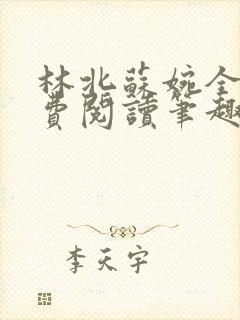 林北蘇婉全
費閱讀筆趣
李天宇